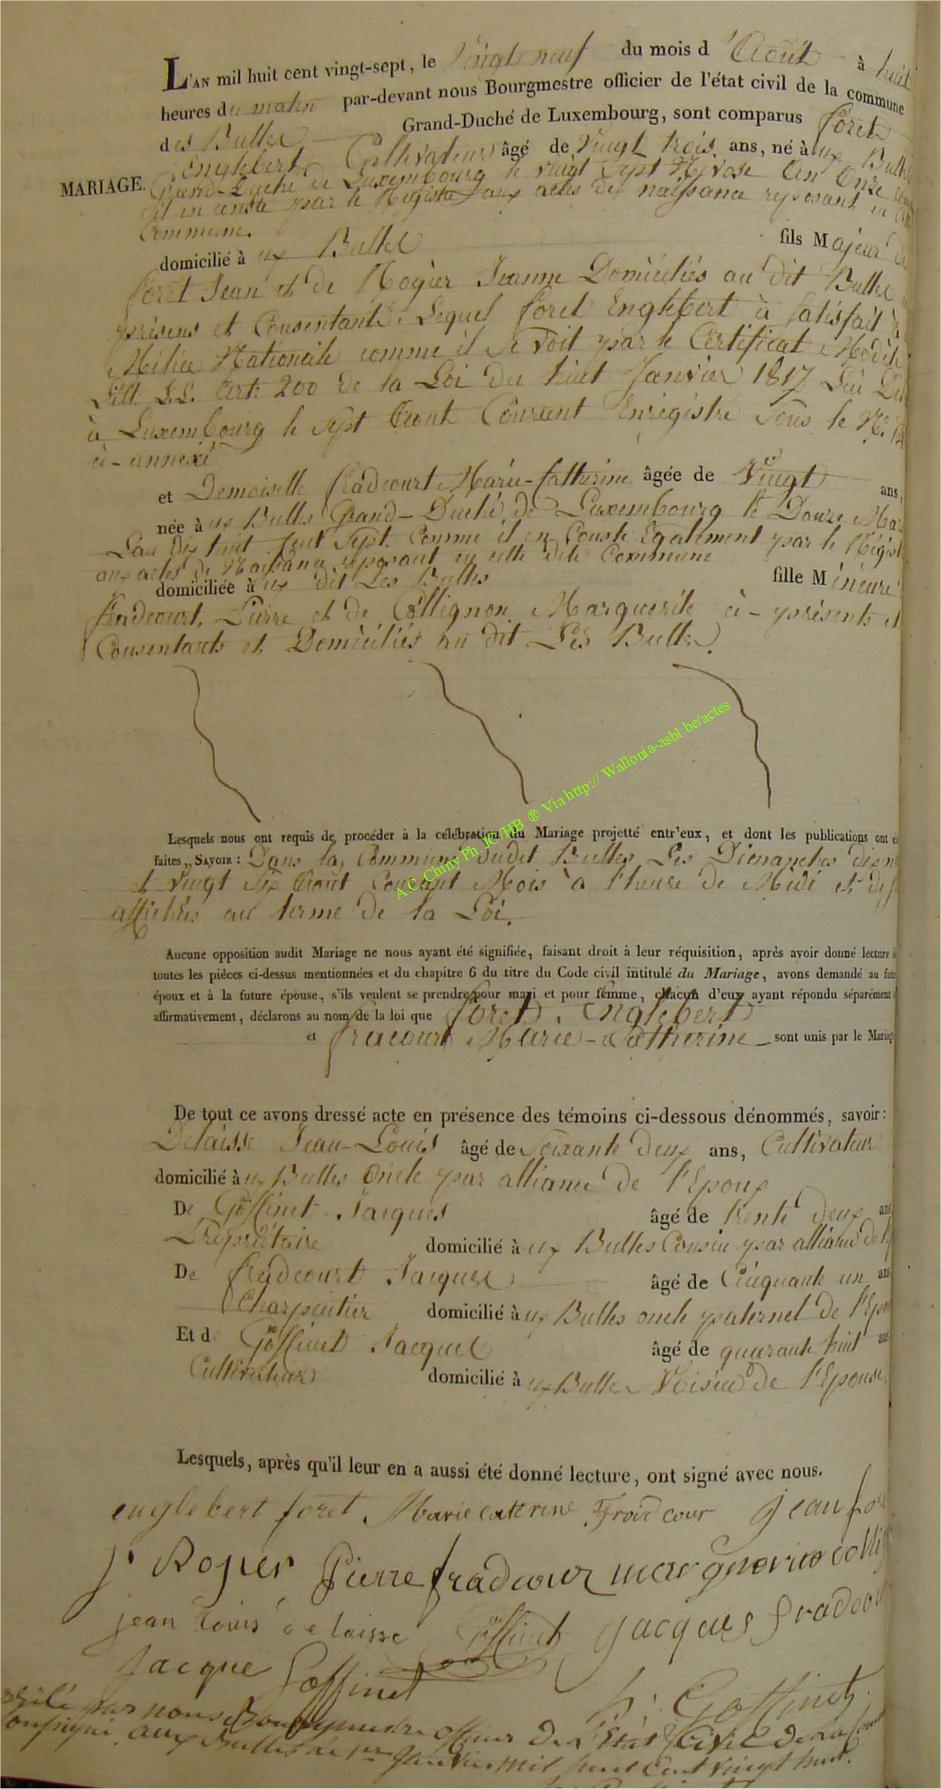 L'AN mil huit cent vingt-sept, le Vingt neuf du mois d'Août à huit
heures du matin par-devant nous Bourgmestre officier de l'état civil de la commune
des Bulles Grand-Duché de Luxembourg, sont comparus foret
Englebert Cultivateur âgé de Vingt trois ans, né à ux Bulles
MARIAGE.
Grand-Duché de Luxembourg le vingt Sept Nivose l'an Onze comme
il en conste par le Registre aux actes de naissance reposant en
Commune.
domicilié à ux Bulles fils Majeur de
foret Jean et de Rogier Jeanne Domiciliés au dit Bulles
présens et Consentants. Lequel foret Englebert à satisfait à
Milice Nationale comme il se voit par le Certificat Modèle
Litt. L.L. Art. 200 de la Loi du huit Janvier 1817
à Luxembourg le Sept Août Courant Enregistré Sous le No.
ci-annexé
et Demoiselle fradcourt Marie-Catherine âgée de Vingt ans,
née à ux Bulles Grand-Duché de Luxembourg le Douze Mars
L'an dix huit Cent Sept Comme il en Conste Egalement par le Régistre
aux actes de Naissance reposant en cette dite Commune
domiciliée à ux dit Les Bulles fille Mineure
fradcourt Pierre et de Collignon Marguerite ci-présents et
Consentants et Domiciliés au dit Les Bulles.
A.C. Chiny Ph JC/HB ® Via http:// Wallonia-asbl.be/actes
Lesquels nous ont requis de procéder à la célébration du Mariage projetté entr'eux, et dont les publications ont
faites, SAVOIR: Dans la Commune dudit Bulles Les Dimanches
et vingt Six Août Courant Mois à l'heure de Midi et
affichés au terme de la Loi.
Aucune opposition audit Mariage ne nous ayant été signifiée, faisant droit à leur réquisition, après avoir donné lecture
toutes les pièces ci-dessus mentionnées et du chapitre 6 du titre du Code civil intitulé du Mariage, avons demandé au futur
époux et à la future épouse, s'ils veulent se prendre pour mari et pour femme, chacun d'eux ayant répondu séparément
affirmativement, déclarons au nom de la loi que foret Englebert
et fracourt Marie-Catherine sont unis par le Mariage
De tout ce avons dressé acte en présence des témoins ci-dessous dénommés, savoir:
Delaisse Jean-Louis âgé de Soixante deux ans, Cultivateur
domicilié à ux Bulles Oncle par alliance de l'Epoux
De Goffinet Jacques âgé de trente deux ans
Propriétaire domicilié à ux Bulles Cousin par alliance de
De fradcourt Jacques âgé de Cinquante un ans
Charpentier domicilié à ux Bulles oncle paternel de
Et d Goffinet Jacques âgé de quarante huit ans
Cultivateur domicilié à ux Bulles Voisin de l'Epouse
Lesquels, après qu'il leur en a aussi été donné lecture, ont signé avec nous.
englebert foret Marie caterine Froidcour jean
J. Rogier Pierre fradcour
jean louis delaisse Goffinet jacques
Jacque Goffinet
h: Goffinet
par nous officier de l'Etat Civil de la
aux Bulles le 1er Janvier mil huit Cent vingt huit.